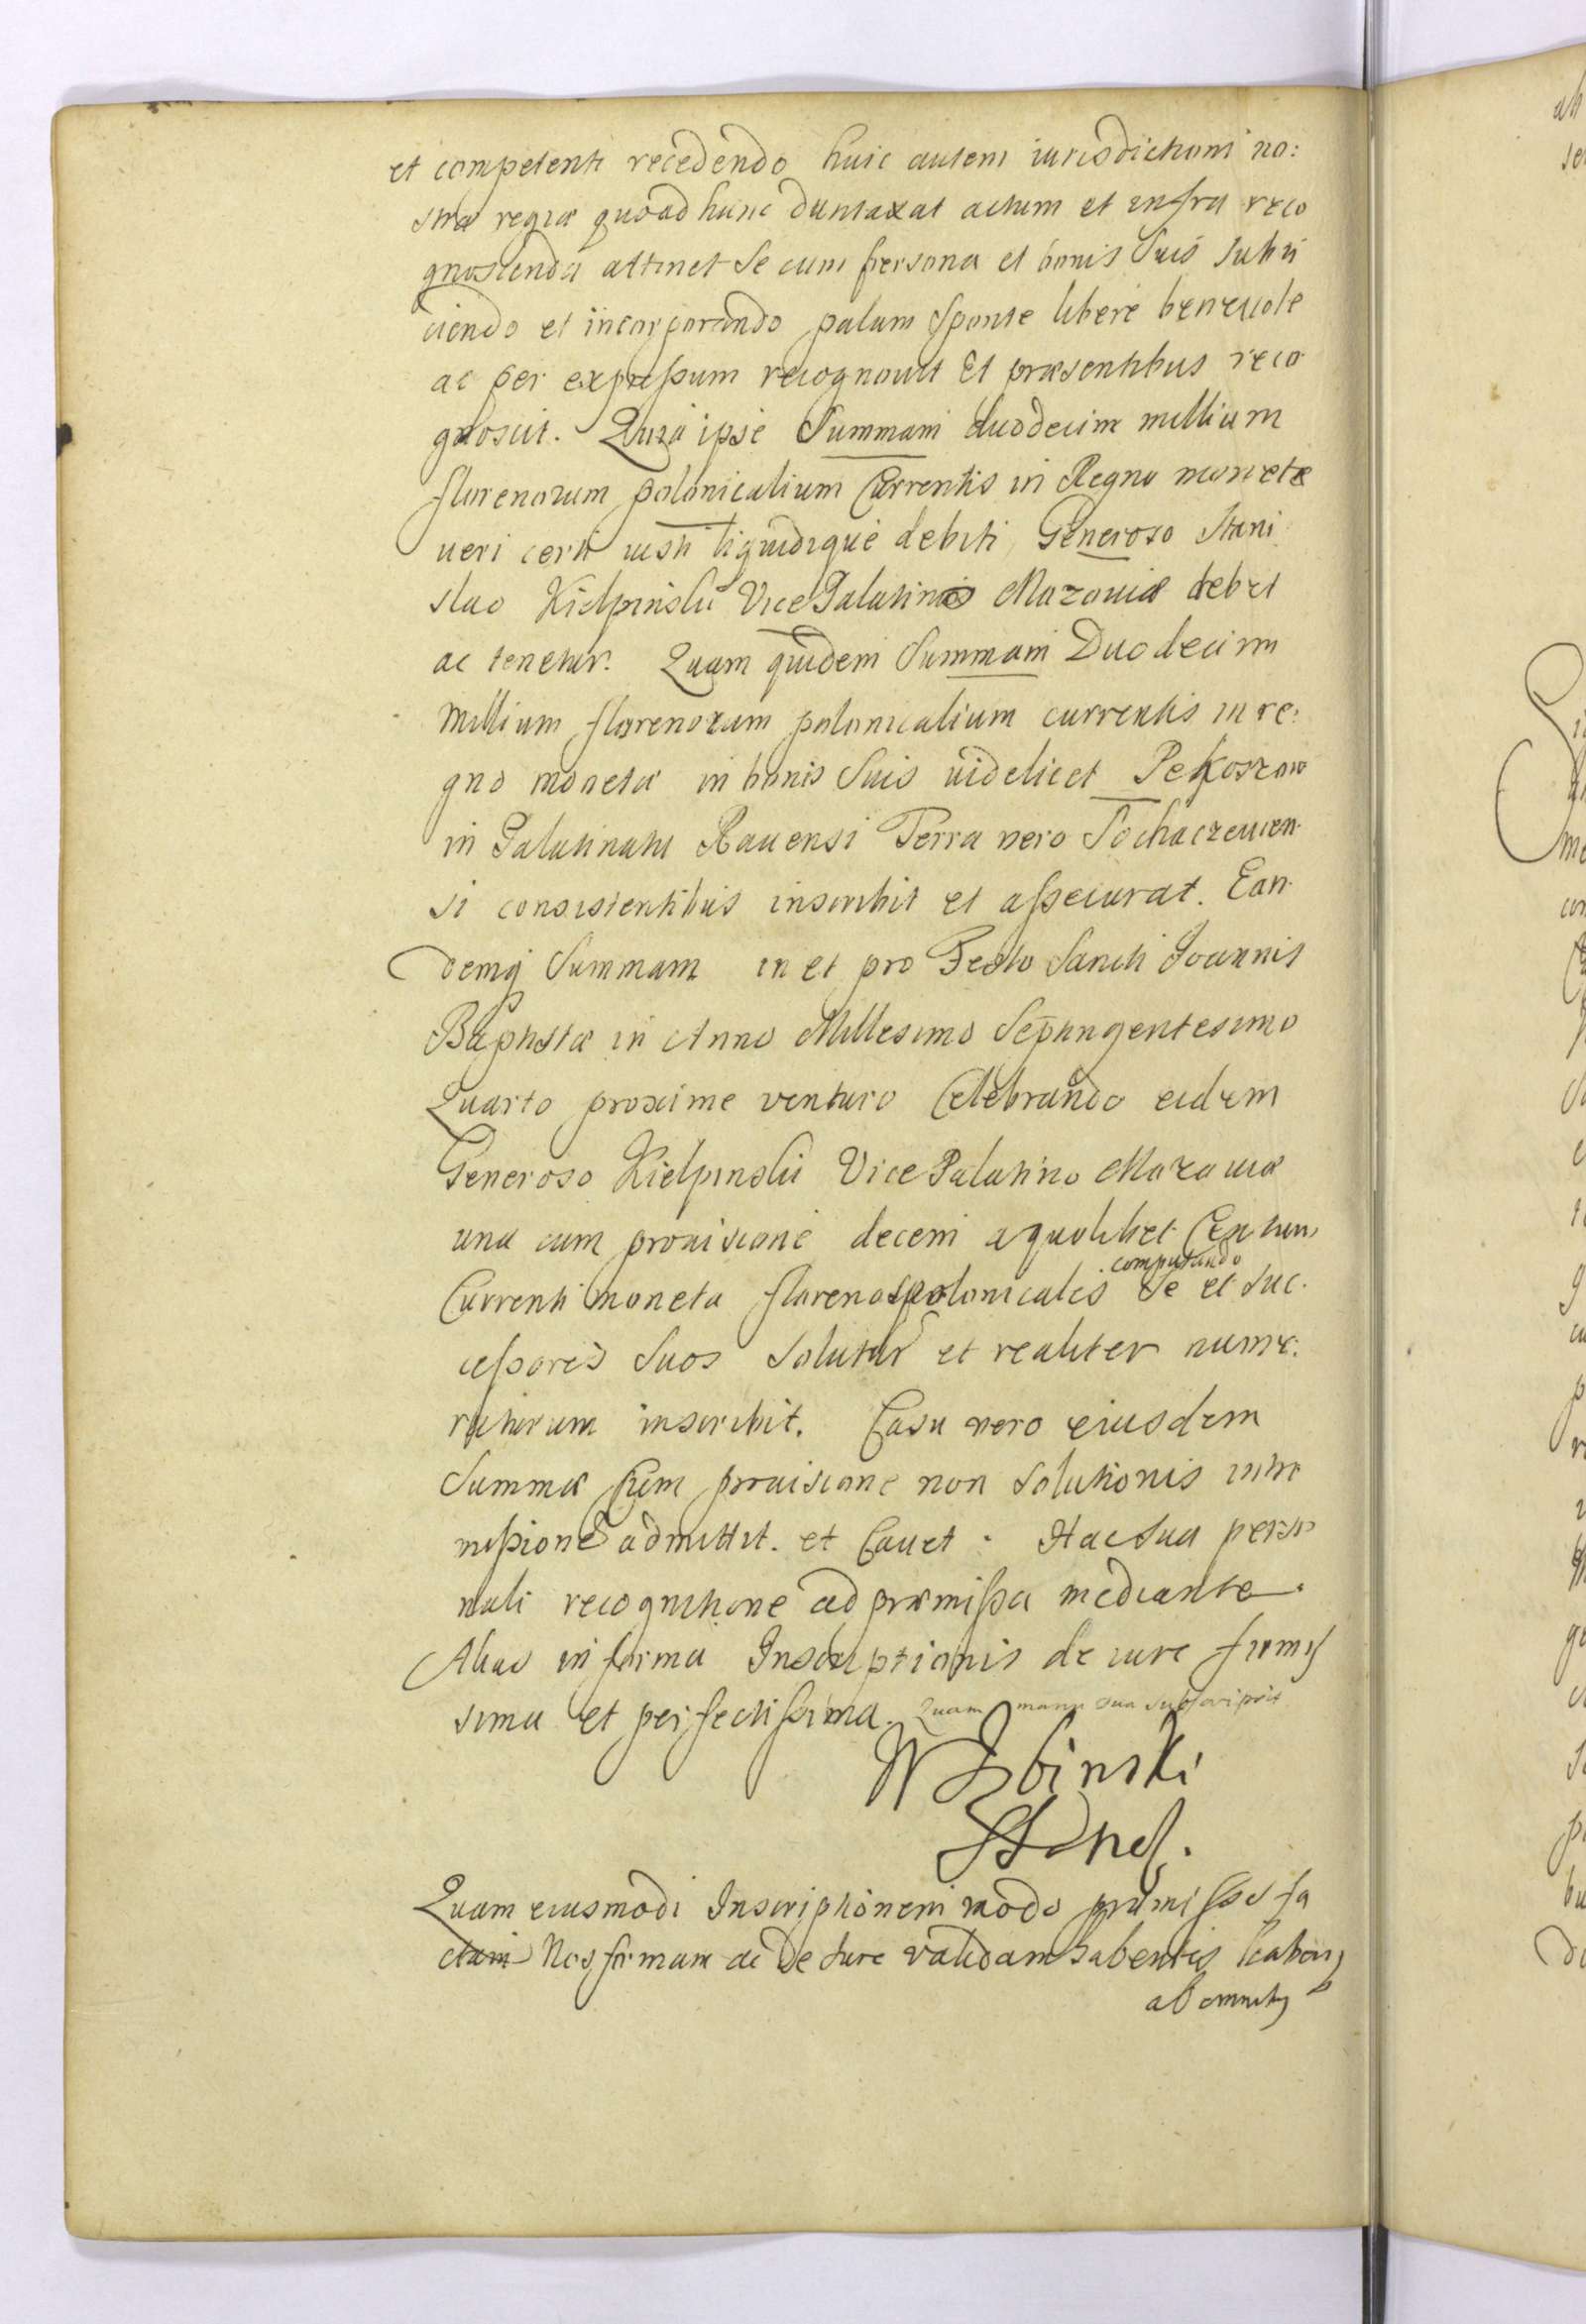 et competenti recedendo huic autem iurisdictioni no:
stræ regiæ quoad hunc duntaxat actum et infra reco
gnoscenda attinet se cum persona et bonis suis subii
ciendo et incorporando palam sponte libere beneuole
ac per expressum recognouit Et præsentibus reco
gnoscit. Quia ipse Summam duodecim millium
florenorum polonicalium Currentis in Regno monetæ
ueri certi iusti liquidique debiti Generoso Stani
slao Kiełpinski Vice Palatino Mazouiæ debet
ac tenetur. Quam quidem Summam Duodecim
Millium florenorum polonicalium currentis in re:
gno monetæ in bonis Suis uidelicet Pekoszew
in Palatinatu Rauensi Terra vero Sochaczeuien
si consistentibus inscribit et assecurat. Ean
demq Summam in et pro Festo Sancti Joannis
Baptistæ in Anno Millesimo Septingentesimo
Quarto proxime venturo Celebrando eidem
Generoso Kiełpinski Vice Palatino Mazouiæ
una cum prouisione decem a quolibet Centum
Currenti moneta florenos polonicales computando Se et suc.
cessores suos soluturum et realiter nume:
raturum inscribit. Casu vero eiusdem
Summæ cum prouisione non solutionis intro
missionem admittit. et Cauet. Hac sua perso
nali recognitione ad præmissa mediante.
Alias in forma Inscriptionis de iure firmis
sima et perfectissima. Quam manu sua subscripsit
W Zbinski
Quam eiusmodi Inscriptionem modo præmisso fa
ctam Nos firmam ac de Iure validam habentes
ab omnibq